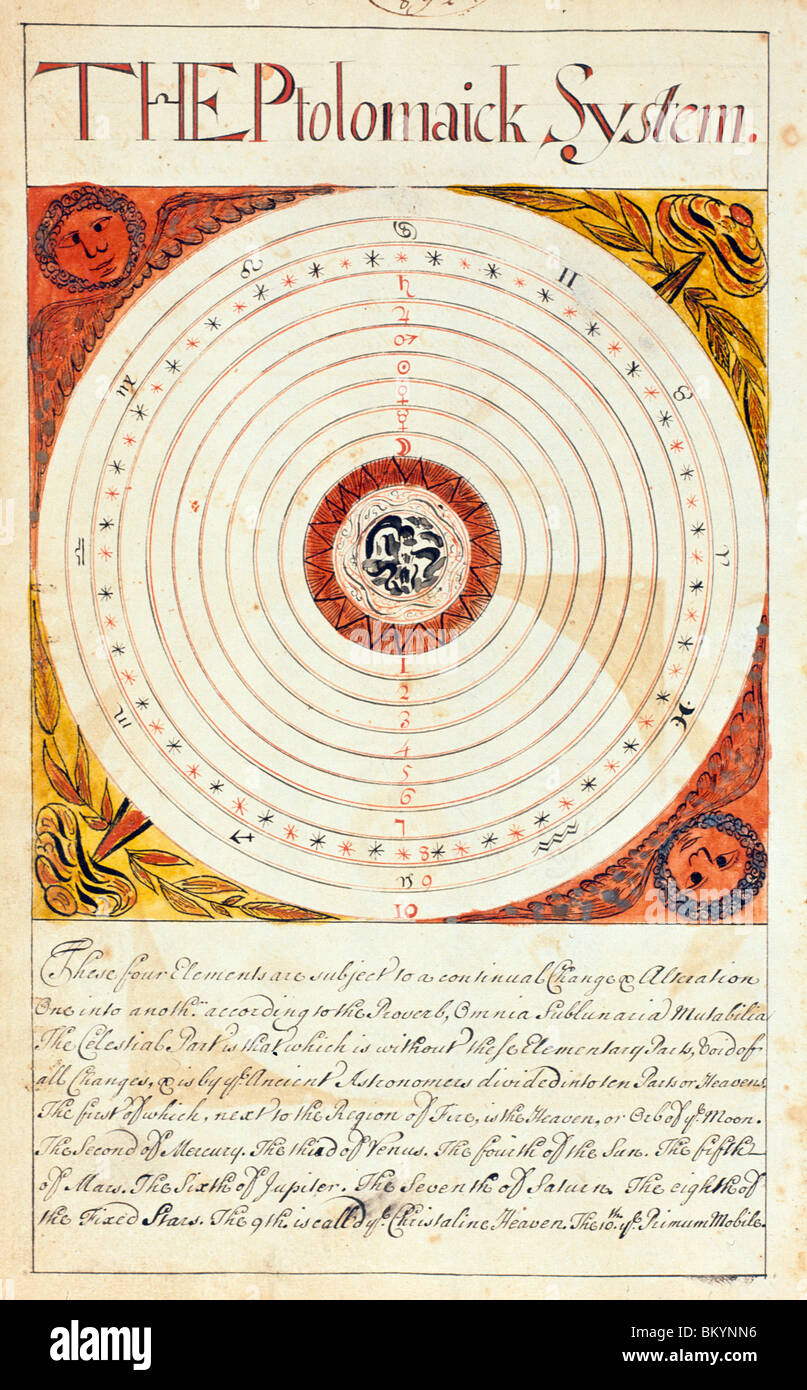 THE Ptolomaick System.
♄
♃
♂
☉
♀
☿
☽
♋
♊
♉
♈
♓
♒
♑
♐
♏
♎
♍
♌
1
2
3
4
5
6
7
8
9
10
These four Elements are subject to a continual Change & Alteration
One into anothr according to the Proverb, Omnia Sublunaria Mutabilia
The Celestial Part is that which is without these Elementary Parts, Void of
all Changes, & is by ye Ancient Astronomers divided into ten Parts or Heavens
The first of which, next to the Region of Fire, is the Heaven, or Orb of ye Moon.
The Second of Mercury. The third of Venus. The fourth of the Sun. The fifth
of Mars. The Sixth of Jupiter. The Seventh of Saturn. The eighth of
the Fixed Stars. The 9th is call'd ye Christaline Heaven. The 10th ye Primum Mobile.
alamy
Image ID: BKYNN6
www.alamy.com